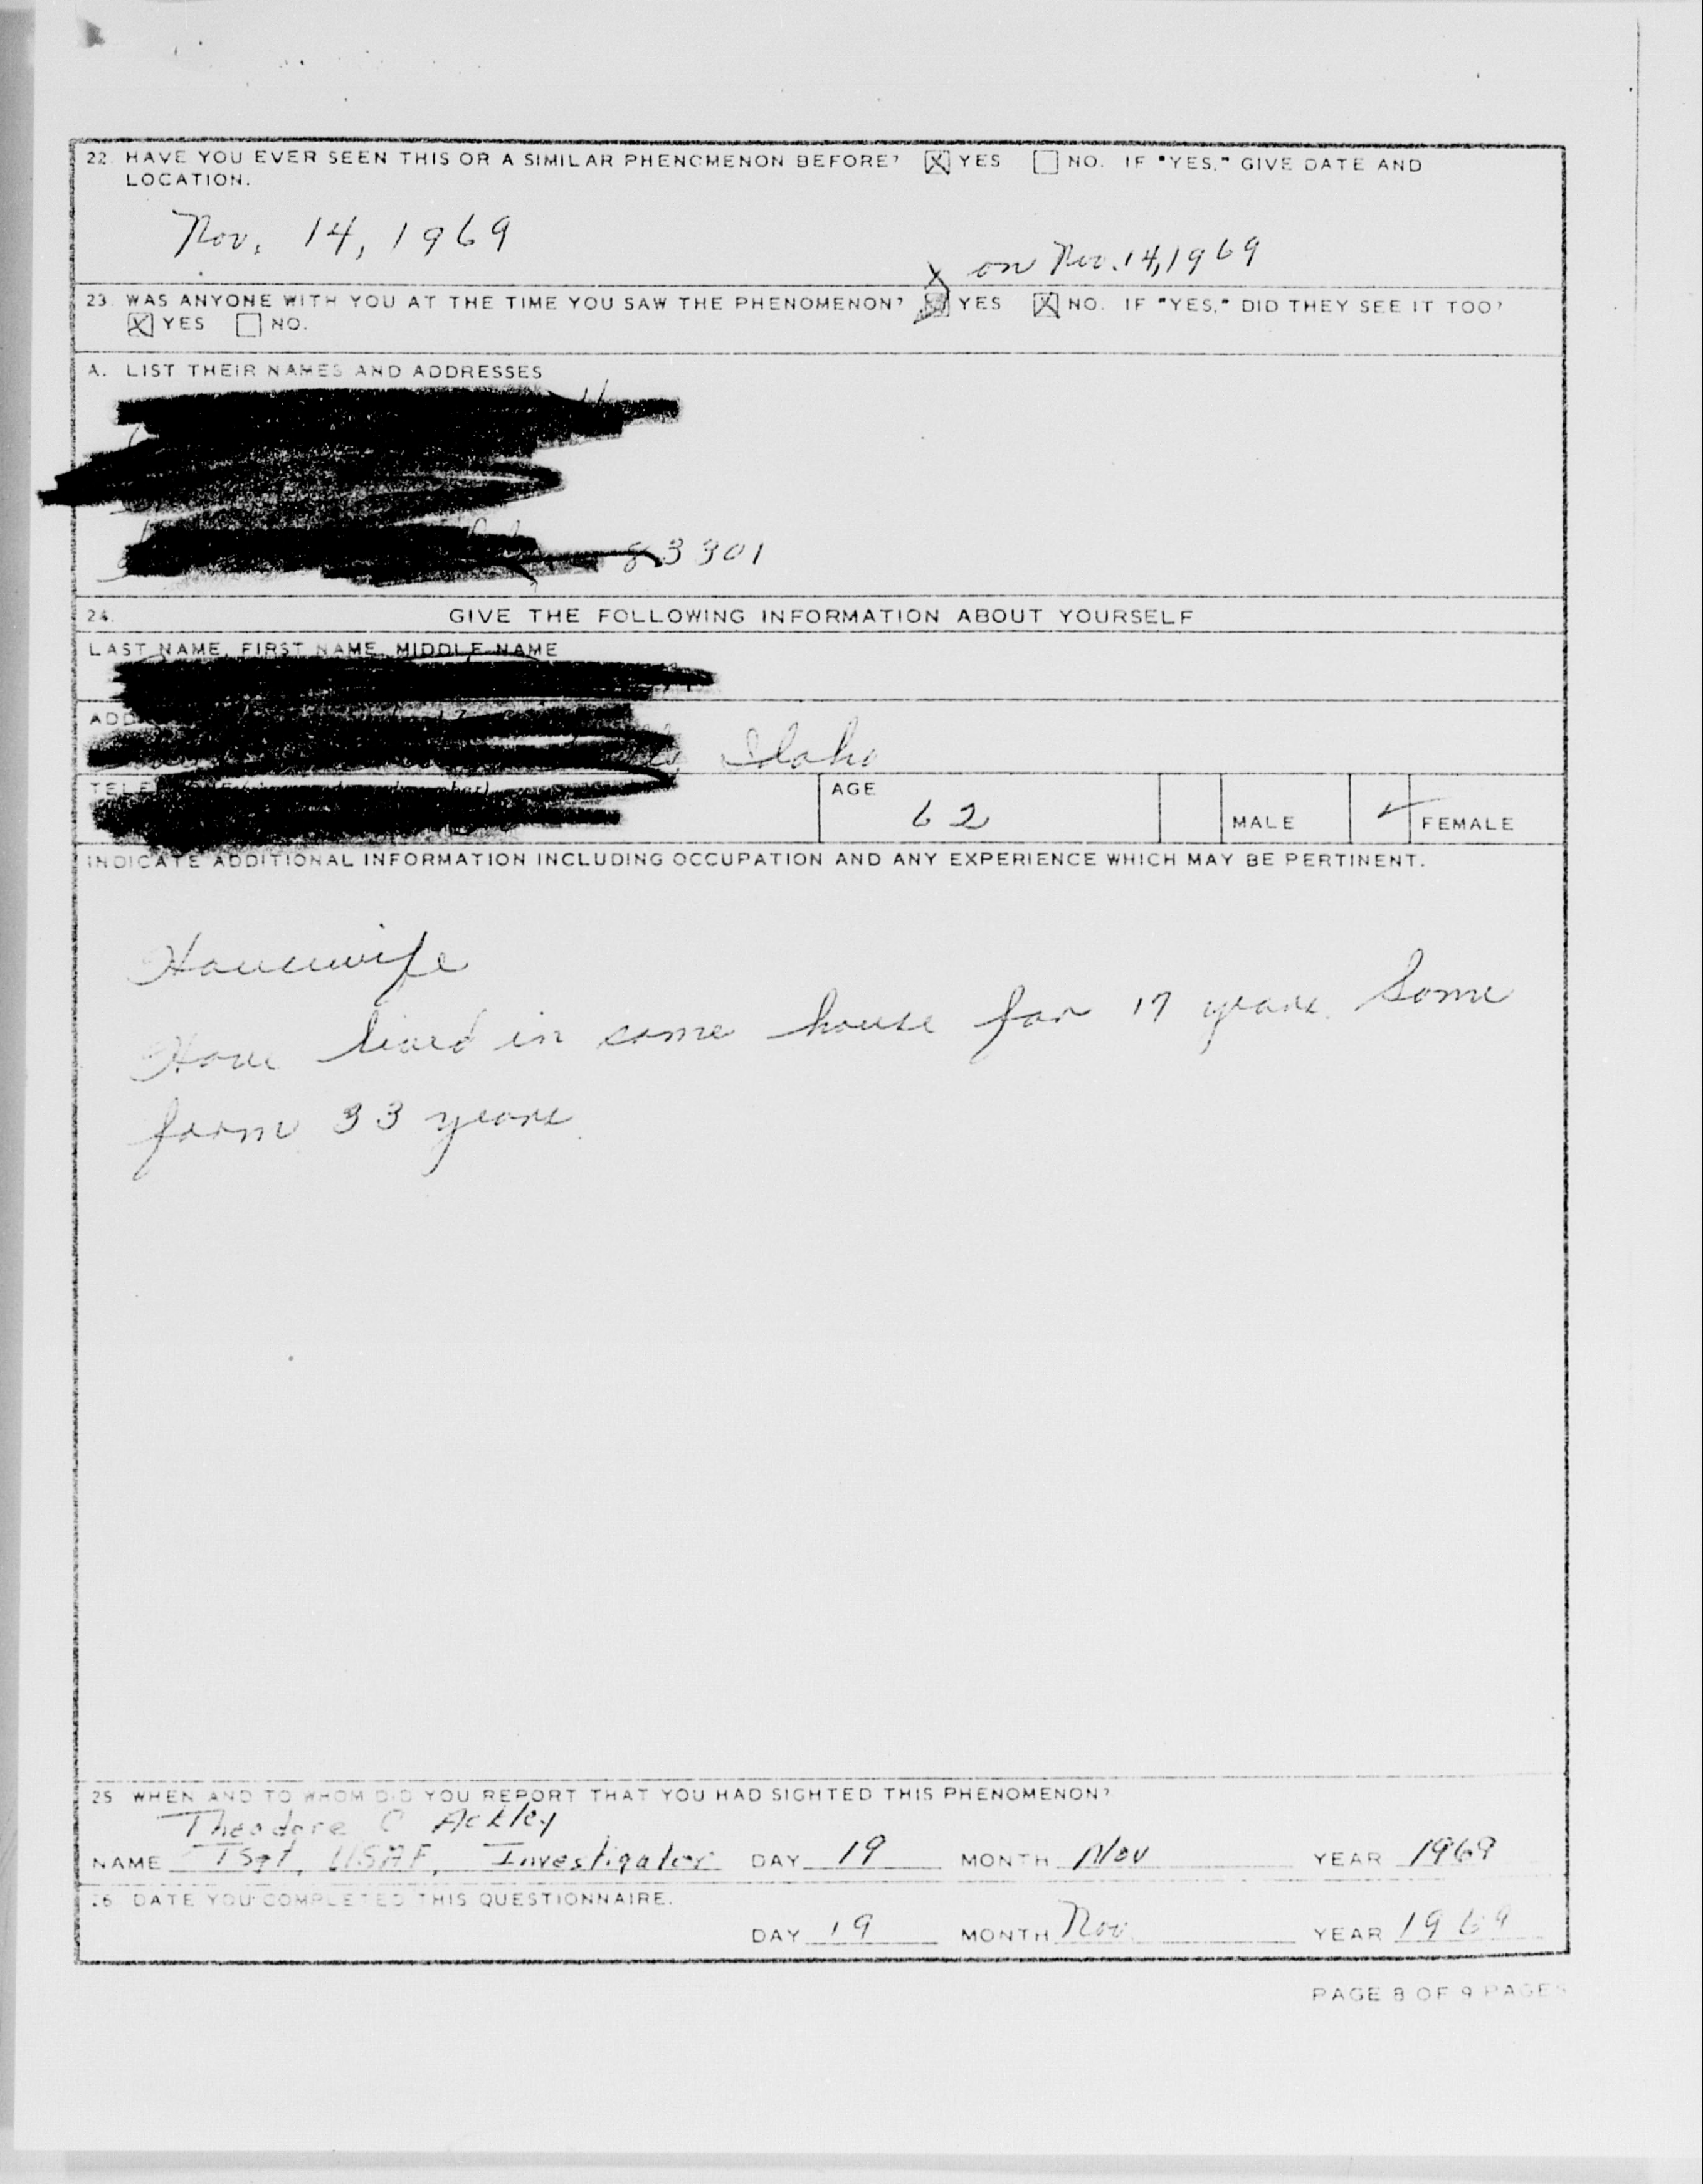 22. HAVE YOU EVER SEEN THIS OR A SIMILAR PHENOMENON BEFORE? [X] YES [ ] NO. IF "YES," GIVE DATE AND
LOCATION.
Nov. 14, 1969
X on Nov. 14, 1969
23. WAS ANYONE WITH YOU AT THE TIME YOU SAW THE PHENOMENON? YES [X] NO. IF "YES," DID THEY SEE IT TOO?
[X] YES [ ] NO.
A. LIST THEIR NAMES AND ADDRESSES
83301
24. GIVE THE FOLLOWING INFORMATION ABOUT YOURSELF
LAST NAME, FIRST NAME, MIDDLE NAME
ADD
Idaho
TELE
AGE
62 MALE ✓ FEMALE
INDICATE ADDITIONAL INFORMATION INCLUDING OCCUPATION AND ANY EXPERIENCE WHICH MAY BE PERTINENT.
Housewife
Have lived in same house for 17 years. Same
farm 33 years.
25 WHEN AND TO WHOM DID YOU REPORT THAT YOU HAD SIGHTED THIS PHENOMENON?
Theodore C Ackley
NAME TSgt, USAF, Investigator DAY 19 MONTH Nov YEAR 1969
26 DATE YOU COMPLETED THIS QUESTIONNAIRE.
DAY 19 MONTH Nov. YEAR 1969
PAGE 8 OF 9 PAGES